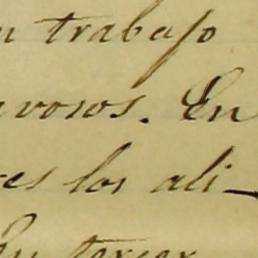 trabajo
vosos. En
es los ali-
tercer